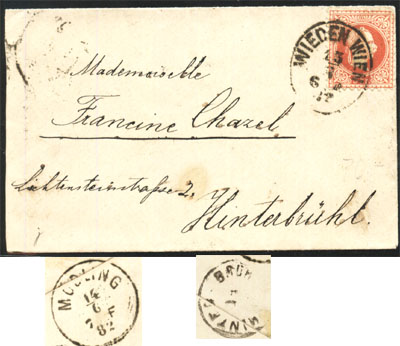 WIEDEN WIEN
13
6
82
Mademoiselle
Francine Chazel
Lichtensteinstrasse 2,
Hinterbrühl.
MÖDLING
14
6
F
82
BRÜH
HINTER